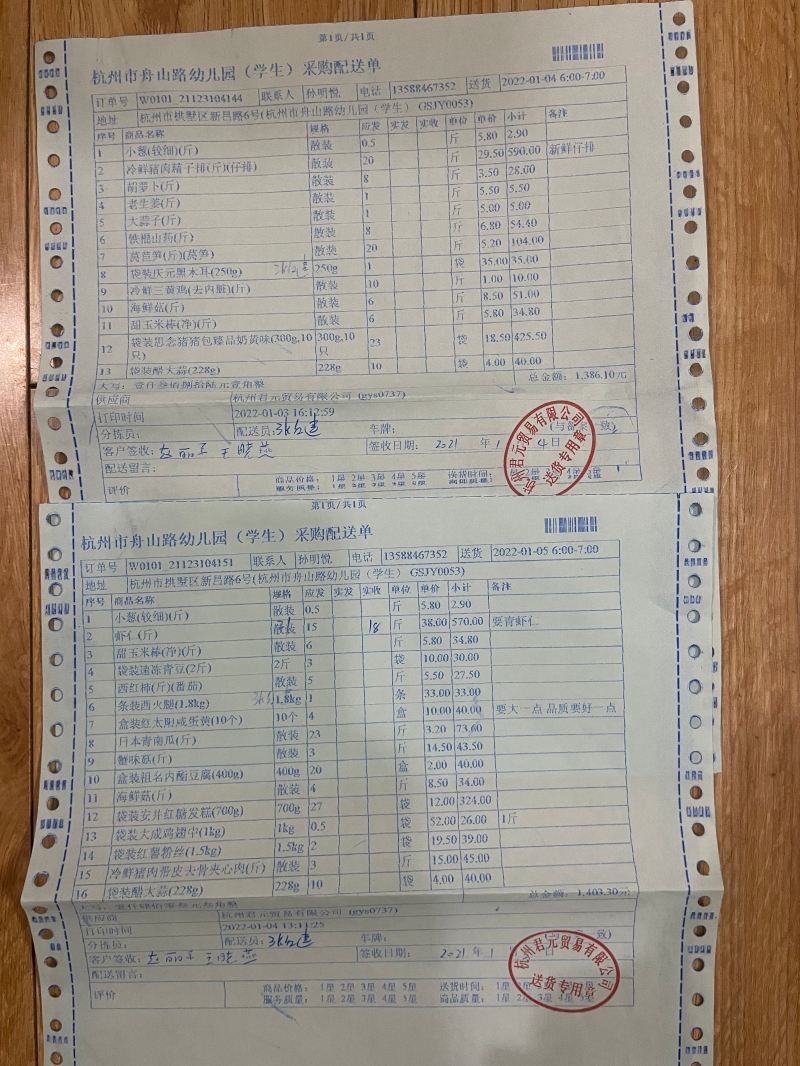 第1页/共1页
杭州市舟山路幼儿园（学生）采购配送单
订单号 W0101_21123104144 联系人 孙明悦 电话 13588467352 送货 2022-01-04 6:00-7:00
地址 杭州市拱墅区新昌路6号(杭州市舟山路幼儿园（学生） GSJY0053)
序号 商品名称 规格 应发 实发 实收 单位 单价 小计 备注
1 小葱(较细)(斤) 散装 0.5 斤 5.80 2.90
2 冷鲜猪肉精子排(斤)(仔排) 散装 20 斤 29.50 590.00 新鲜仔排
3 胡萝卜(斤) 散装 8 斤 3.50 28.00
4 老生姜(斤) 散装 1 斤 5.50 5.50
5 大蒜子(斤) 散装 1 斤 5.00 5.00
6 铁棍山药(斤) 散装 8 斤 6.80 54.40
7 莴苣笋(斤)(莴笋) 散装 20 斤 5.20 104.00
8 袋装庆元黑木耳(250g) 250g 1 袋 35.00 35.00
9 冷鲜三黄鸡(去内脏)(斤) 散装 10 斤 1.00 10.00
10 海鲜菇(斤) 散装 6 斤 8.50 51.00
11 甜玉米棒(净)(斤) 散装 6 斤 5.80 34.80
12 袋装思念猪猪包臻品奶黄味(300g,10只) 300g,10只 23 袋 18.50 425.50
13 袋装醋大蒜(228g) 228g 10 袋 4.00 40.00
大写：壹仟叁佰捌拾陆元壹角整 总金额：1,386.10元
供应商 杭州君元贸易有限公司 (gys0737)
打印时间 2022-01-03 16:12:59
分拣员： 配送员： 车牌： (与备案一致)
客户签收： 签收日期： 2021 年 1 4 日
配送留言：
评价 商品价格： 1星 2星 3星 4星 5星 送货时间：
服务质量： 1星 2星 3星 4星 5星
杭州君元贸易有限公司
送货专用章
第1页/共1页
杭州市舟山路幼儿园（学生）采购配送单
订单号 W0101_21123104151 联系人 孙明悦 电话 13588467352 送货 2022-01-05 6:00-7:00
地址 杭州市拱墅区新昌路6号(杭州市舟山路幼儿园（学生） GSJY0053)
序号 商品名称 规格 应发 实发 实收 单位 单价 小计 备注
1 小葱(较细)(斤) 散装 0.5 斤 5.80 2.90
2 虾仁(斤) 散装 15 18 斤 38.00 570.00 要青虾仁
3 甜玉米棒(净)(斤) 散装 6 斤 5.80 34.80
4 袋装速冻青豆(2斤) 2斤 3 袋 10.00 30.00
5 西红柿(斤)(番茄) 散装 5 斤 5.50 27.50
6 条装西火腿(1.8kg) 1.8kg 1 条 33.00 33.00
7 盒装红太阳咸蛋黄(10个) 10个 4 盒 10.00 40.00 要大一点 品质要好一点
8 日本青南瓜(斤) 散装 23 斤 3.20 73.60
9 蟹味菇(斤) 散装 3 斤 14.50 43.50
10 盒装祖名内酯豆腐(400g) 400g 20 盒 2.00 40.00
11 海鲜菇(斤) 散装 4 斤 8.50 34.00
12 袋装安井红糖发糕(700g) 700g 27 袋 12.00 324.00
13 袋装大成鸡翅中(1kg) 1kg 0.5 袋 52.00 26.00 1斤
14 袋装红薯粉丝(1.5kg) 1.5kg 2 袋 19.50 39.00
15 冷鲜猪肉带皮去骨夹心肉(斤) 散装 3 斤 15.00 45.00
16 袋装醋大蒜(228g) 228g 10 袋 4.00 40.00
大写：壹仟肆佰零叁元叁角整 总金额：1,403.30元
供应商 杭州君元贸易有限公司 (gys0737)
打印时间 2022-01-04 13:11:25
分拣员： 配送员： 车牌： 一致)
客户签收： 签收日期： 2021 年 1
配送留言：
评价 商品价格： 1星 2星 3星 4星 5星 送货时间： 1星
服务质量： 1星 2星 3星 4星 5星 商品质量： 1星 2星 3星 4星 5星
杭州君元贸易有限公司
送货专用章